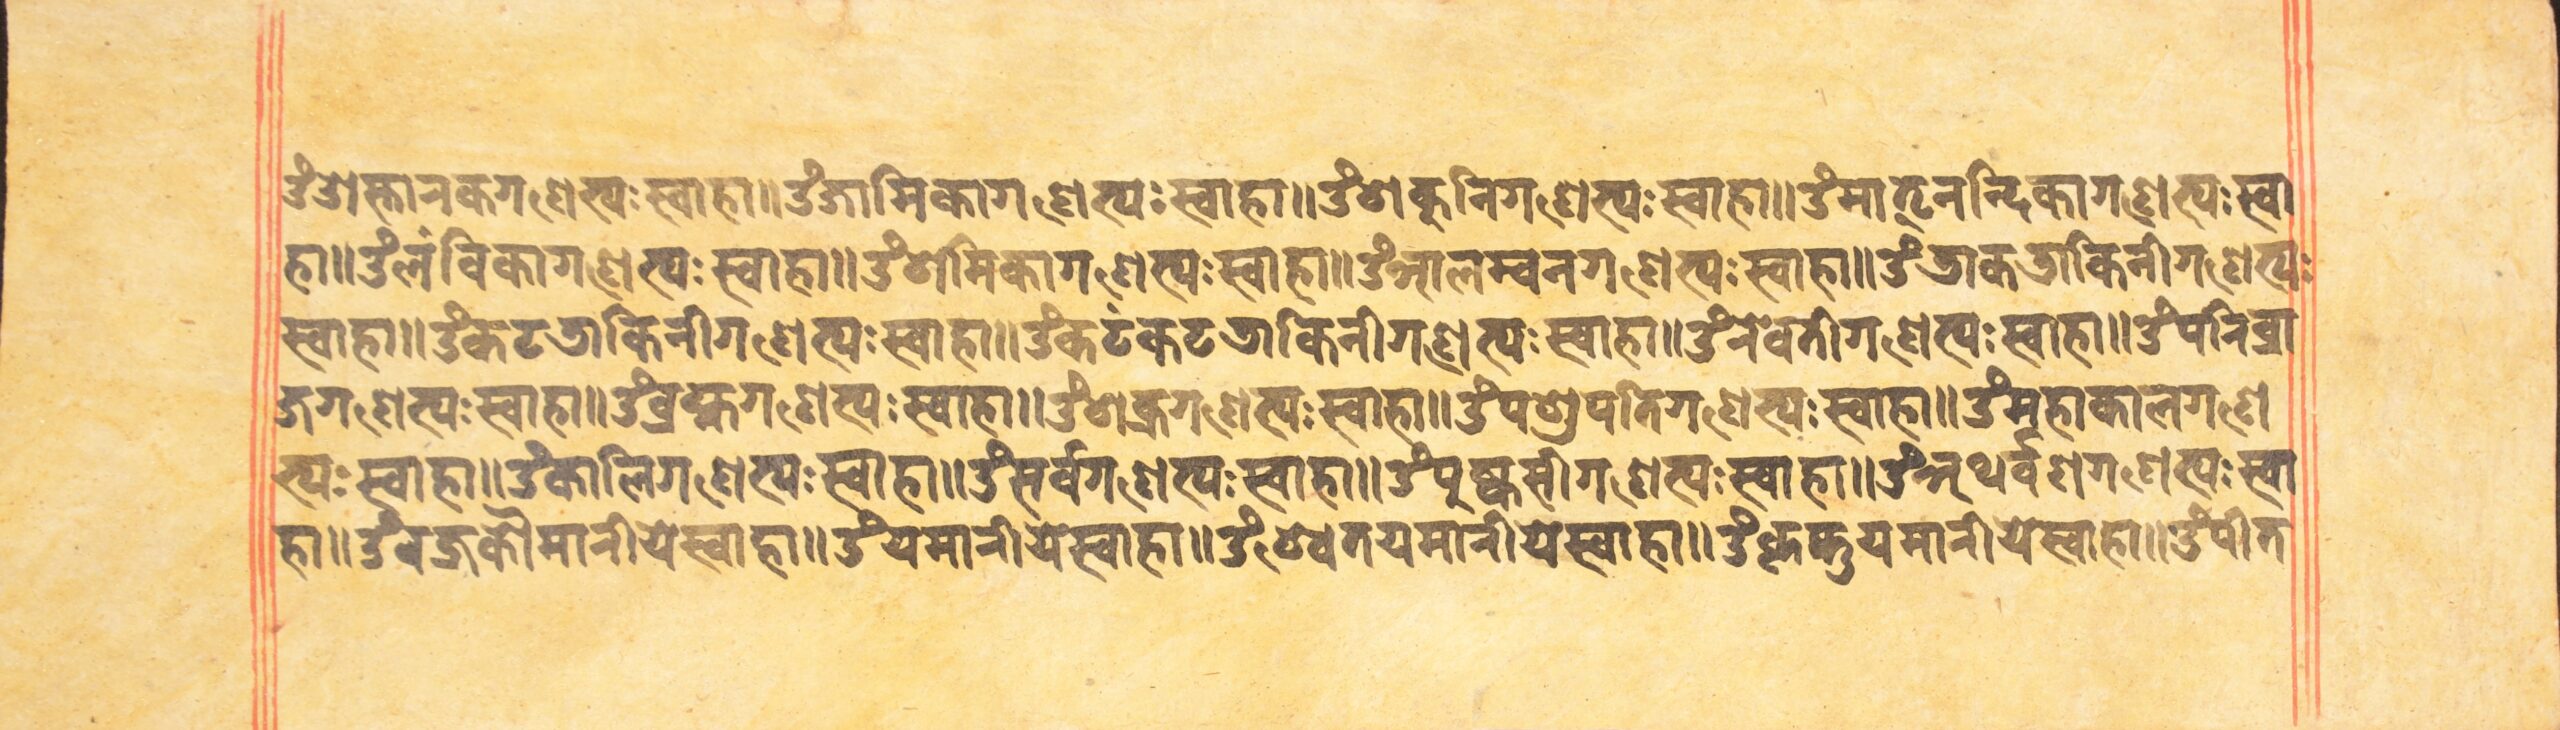 ॐ ओस्तारकगणेभ्यः स्वाहा॥ ॐ जामिकागणेभ्यः स्वाहा॥ ॐ शकुनिगणेभ्यः स्वाहा॥ ॐ मातृनन्दिकागणेभ्यः स्वा
हा॥ ॐ लंविकागणेभ्यः स्वाहा॥ ॐ शमिकागणेभ्यः स्वाहा॥ ॐ आलम्वनगणेभ्यः स्वाहा॥ ॐ डाकडाकिनीगणेभ्यः
स्वाहा॥ ॐ कटडाकिनीगणेभ्यः स्वाहा॥ ॐ कटंकटडाकिनीगणेभ्यः स्वाहा॥ ॐ रेवतीगणेभ्यः स्वाहा॥ ॐ परिव्रा
जगणेभ्यः स्वाहा॥ ॐ व्रह्मगणेभ्यः स्वाहा॥ ॐ शक्रगणेभ्यः स्वाहा॥ ॐ पशुपतिगणेभ्यः स्वाहा॥ ॐ महाकालगणे
भ्यः स्वाहा॥ ॐ कालिगणेभ्यः स्वाहा॥ ॐ सर्वगणेभ्यः स्वाहा॥ ॐ पुष्कसीगणेभ्यः स्वाहा॥ ॐ अथर्वशगणेभ्यः स्वा
हा॥ ॐ वज्रकौमारीये स्वाहा॥ ॐ यमारीये स्वाहा॥ ॐ श्वेतयमारीये स्वाहा॥ ॐ यमारीये स्वाहा॥ ॐ पीत